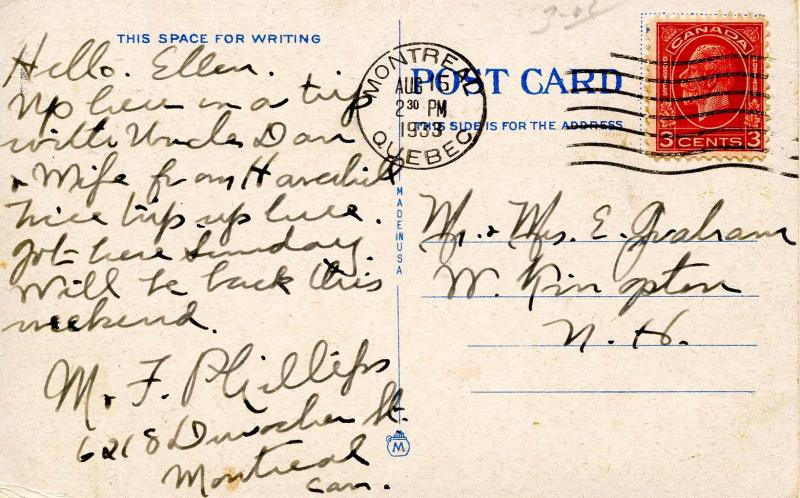 THIS SPACE FOR WRITING
Hello. Ellen.
Up here on a trip
with Uncle Dan
+ Wife from Haverhill
Nice trip up here.
Got here Sunday.
Will be back this
weekend.
M. F. Phillips
6218 Durocher St.
Montreal
Can.
MADE IN USA
M
3-02
MONTREAL
AUG 15
2 30 PM
1933
QUEBEC
POST CARD
THIS SIDE IS FOR THE ADDRESS
CANADA
3 CENTS 3
Mr. + Mrs. E. Graham
W. Kingston
N. H.